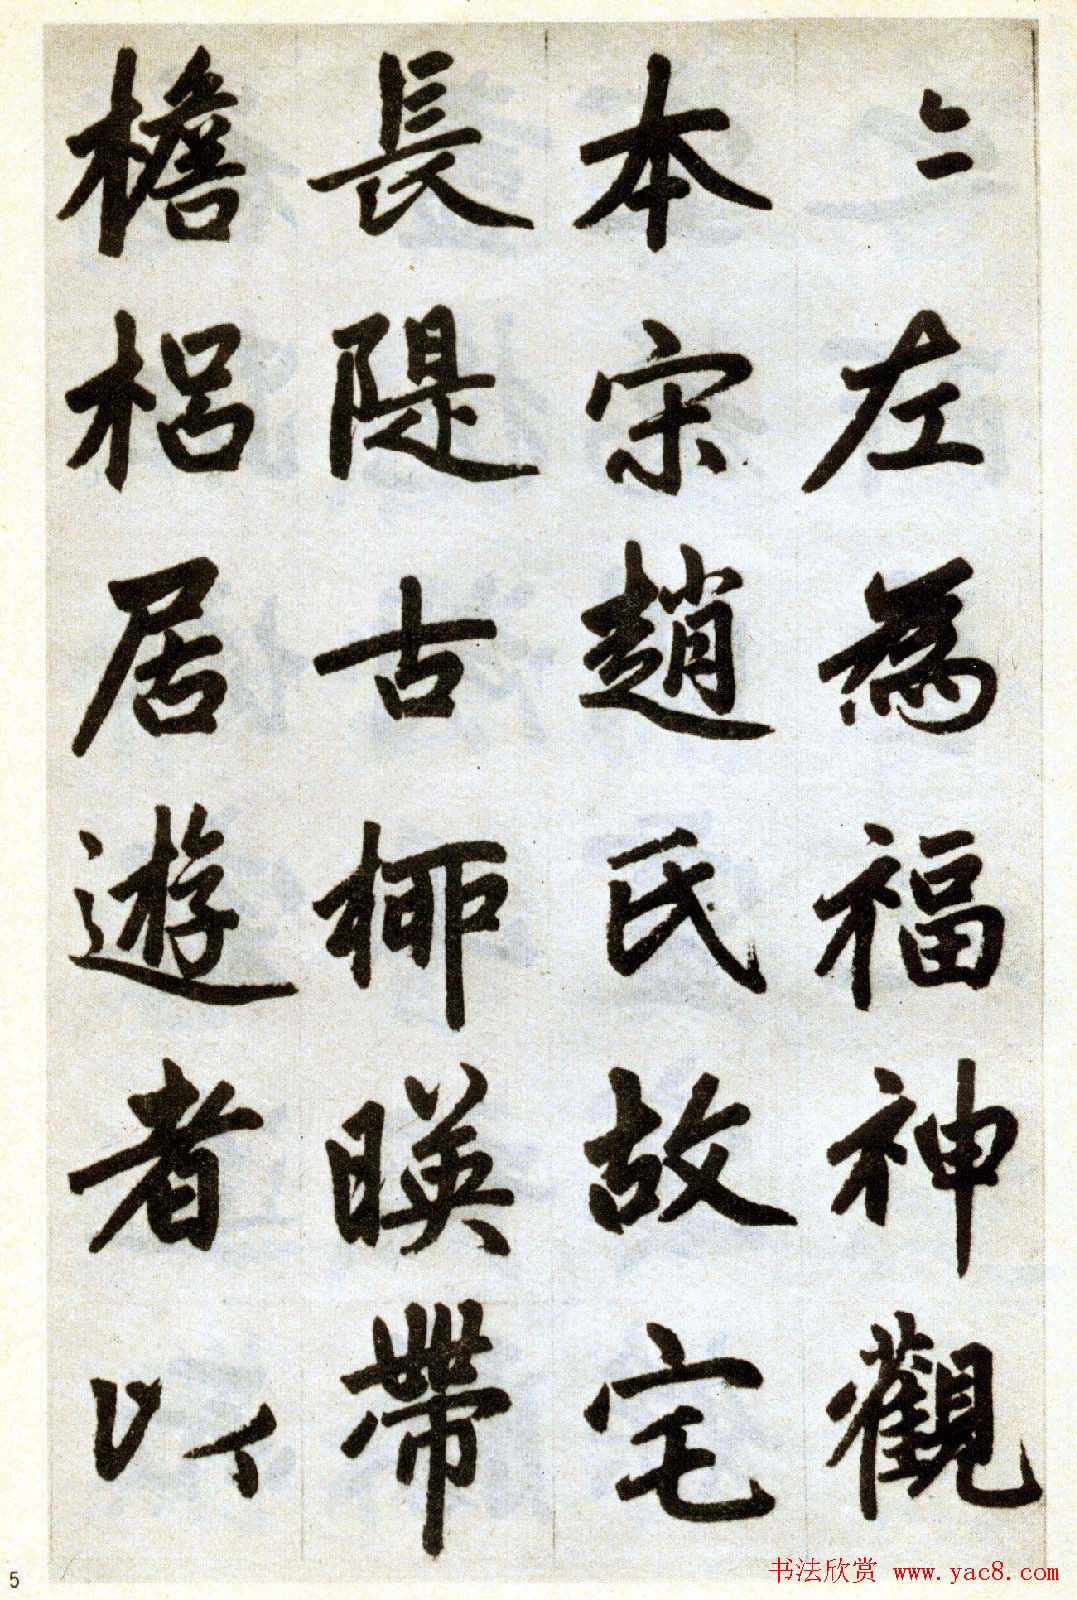 左為福神觀
本宋趙氏故宅
長隄古栁暎帶
檐梠居遊者以
5
书法欣赏 www.yac8.com